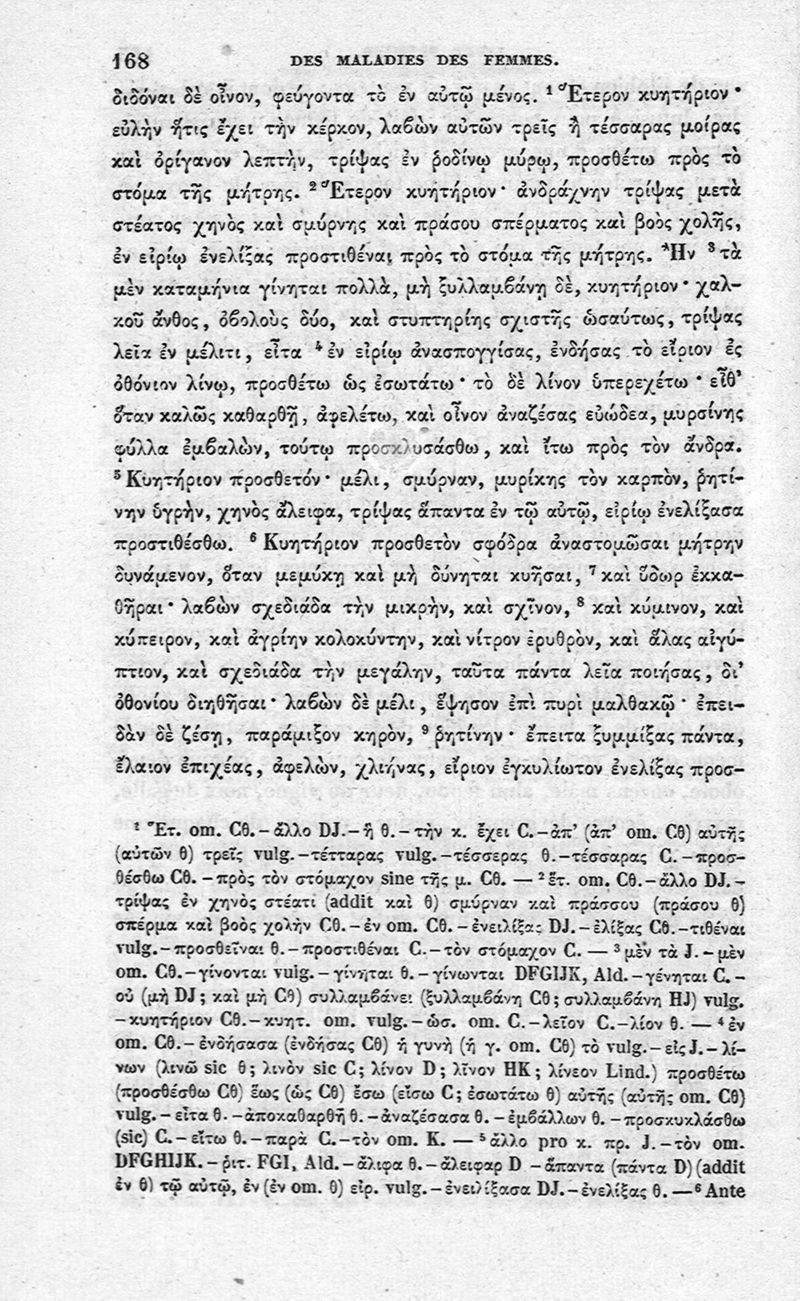 168 DES MALADIES DES FEMMES.
διδόναι δὲ οἶνον, φεύγοντα τὸ ἐν αὐτῷ μένος. ¹ Ἕτερον κυητήριον·
εὐλὴν ἥτις ἔχει τὴν κέρκον, λαβὼν αὐτῶν τρεῖς ἢ τέσσαρας μοίρας
καὶ ὀρίγανον λεπτὴν, τρίψας ἐν ῥοδίνῳ μύρῳ, προσθέτω πρὸς τὸ
στόμα τῆς μήτρης. ² Ἕτερον κυητήριον· ἀνδράχνην τρίψας μετὰ
στέατος χηνὸς καὶ σμύρνης καὶ πράσου σπέρματος καὶ βοὸς χολῆς,
ἐν εἰρίῳ ἐνελίξας προστιθέναι πρὸς τὸ στόμα τῆς μήτρης. Ἢν ³ τὰ
μὲν καταμήνια γίνηται πολλὰ, μὴ ξυλλαμβάνῃ δὲ, κυητήριον· χαλ-
κοῦ ἄνθος, ὀβολοὺς δύο, καὶ στυπτηρίης σχιστῆς ὡσαύτως, τρίψας
λεῖα ἐν μέλιτι, εἶτα ⁴ ἐν εἰρίῳ ἀνασπογγίσας, ἐνδήσας τὸ εἴριον ἐς
ὀθόνιον λίνῳ, προσθέτω ὡς ἐσωτάτω· τὸ δὲ λίνον ὑπερεχέτω· εἶθ'
ὅταν καλῶς καθαρθῇ, ἀφελέτω, καὶ οἶνον ἀναζέσας εὐώδεα, μυρσίνης
φύλλα ἐμβαλὼν, τούτῳ προσκλυσάσθω, καὶ ἴτω πρὸς τὸν ἄνδρα.
⁵ Κυητήριον προσθετόν· μέλι, σμύρναν, μυρίκης τὸν καρπὸν, ῥητί-
νην ὑγρὴν, χηνὸς ἄλειφα, τρίψας ἅπαντα ἐν τῷ αὐτῷ, εἰρίῳ ἐνελίξασα
προστιθέσθω. ⁶ Κυητήριον προσθετὸν σφόδρα ἀναστομῶσαι μήτρην
δυνάμενον, ὅταν μεμύκῃ καὶ μὴ δύνηται κυῆσαι, ⁷ καὶ ὕδωρ ἐκκα-
θῆραι· λαβὼν σχεδιάδα τὴν μικρὴν, καὶ σχῖνον, ⁸ καὶ κύμινον, καὶ
κύπειρον, καὶ ἀγρίην κολοκύντην, καὶ νίτρον ἐρυθρὸν, καὶ ἅλας αἰγύ-
πτιον, καὶ σχεδιάδα τὴν μεγάλην, ταῦτα πάντα λεῖα ποιήσας, δι'
ὀθονίου διηθῆσαι· λαβὼν δὲ μέλι, ἕψησον ἐπὶ πυρὶ μαλθακῷ· ἐπει-
δὰν δὲ ζέσῃ, παράμιξον κηρὸν, ⁹ ῥητίνην· ἔπειτα ξυμμίξας πάντα,
ἔλαιον ἐπιχέας, ἀφελὼν, χλιήνας, εἴριον ἐγκυλίωτον ἐνελίξας προσ-
¹ Ἕτ. om. Cθ. – ἄλλο DJ. – ἢ θ. – τὴν κ. ἔχει C. – ἀπ' (ἀπ' om. Cθ) αὐτῆς
(αὐτῶν θ) τρεῖς vulg. – τέτταρας vulg. – τέσσερας θ. – τέσσαρας C. – προσ-
θέσθω Cθ. – πρὸς τὸν στόμαχον sine τῆς μ. Cθ. — ² ἕτ. om. Cθ. – ἄλλο DJ. –
τρίψας ἐν χηνὸς στέατι (addit καὶ θ) σμύρναν καὶ πράσσου (πράσου θ)
σπέρμα καὶ βοὸς χολὴν Cθ. – ἐν om. Cθ. – ἐνειλίξας DJ. – ἑλίξας Cθ. – τιθέναι
vulg. – προσθεῖναι θ. – προστιθέναι C. – τὸν στόμαχον C. — ³ μὲν τὰ J. – μὲν
om. Cθ. – γίνονται vulg. – γίνηται θ. – γίνωνται DFGIJK, Ald. – γένηται C. –
οὐ (μὴ DJ; καὶ μὴ Cθ) συλλαμβάνει (ξυλλαμβάνῃ Cθ; συλλαμβάνῃ HJ) vulg.
– κυητήριον Cθ. – κυητ. om. vulg. – ὡσ. om. C. – λεῖον C. – λίον θ. — ⁴ ἐν
om. Cθ. – ἐνδήσασα (ἐνδήσας Cθ) ἡ γυνὴ (ἡ γ. om. Cθ) τὸ vulg. – εἰς J. – λί-
νων (λινῶ sic θ; λινὸν sic C; λίνον D; λῖνον HK; λίνεον Lind.) προσθέτω
(προσθέσθω Cθ) ἕως (ὡς Cθ) ἔσω (εἴσω C; ἐσωτάτω θ) αὐτῆς (αὐτῆς om. Cθ)
vulg. – εἶτα θ. – ἀποκαθαρθῇ θ. – ἀναζέσασα θ. – ἐμβάλλων θ. – προσκυκλάσθω
(sic) C. – εἴτω θ. – παρὰ C. – τὸν om. K. — ⁵ ἄλλο pro κ. πρ. J. – τὸν om.
DFGHIJK. – ῥιτ. FGI, Ald. – ἄλιφα θ. – ἄλειφαρ D – ἅπαντα (πάντα D) (addit
ἐν θ) τῷ αὐτῷ, ἐν (ἐν om. θ) εἰρ. vulg. – ἐνειλίξασα DJ. – ἐνελίξας θ. — ⁶ Ante